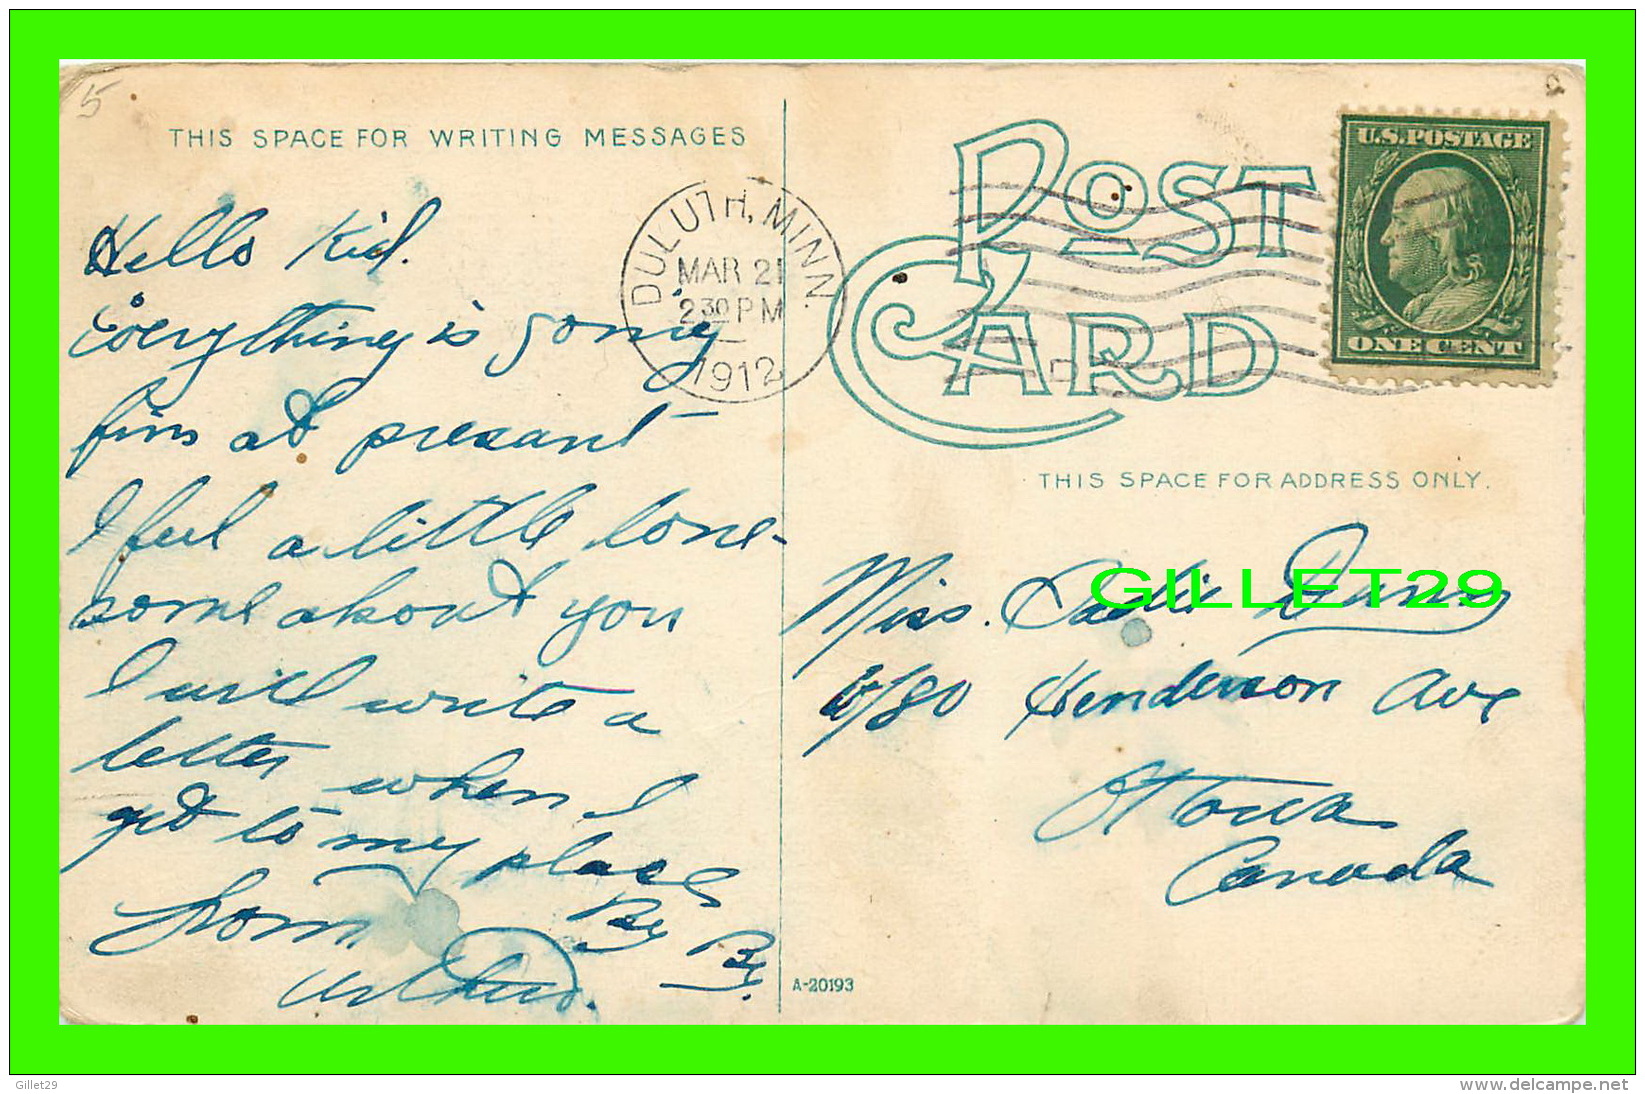 5
THIS SPACE FOR WRITING MESSAGES
Hello Kid.
Everything is going
fine at presant
I feel a little lone-
some about you
I will write a
letter when I
get to my place
from By By.
DULUTH, MINN.
MAR 21
2 30 PM
1912
POST CARD
U.S. POSTAGE
ONE CENT
THIS SPACE FOR ADDRESS ONLY.
Miss. Sadie
GILLET29
Henderson Ave
Ottowa
Canada
A-20193
Gillet29
www.delcampe.net